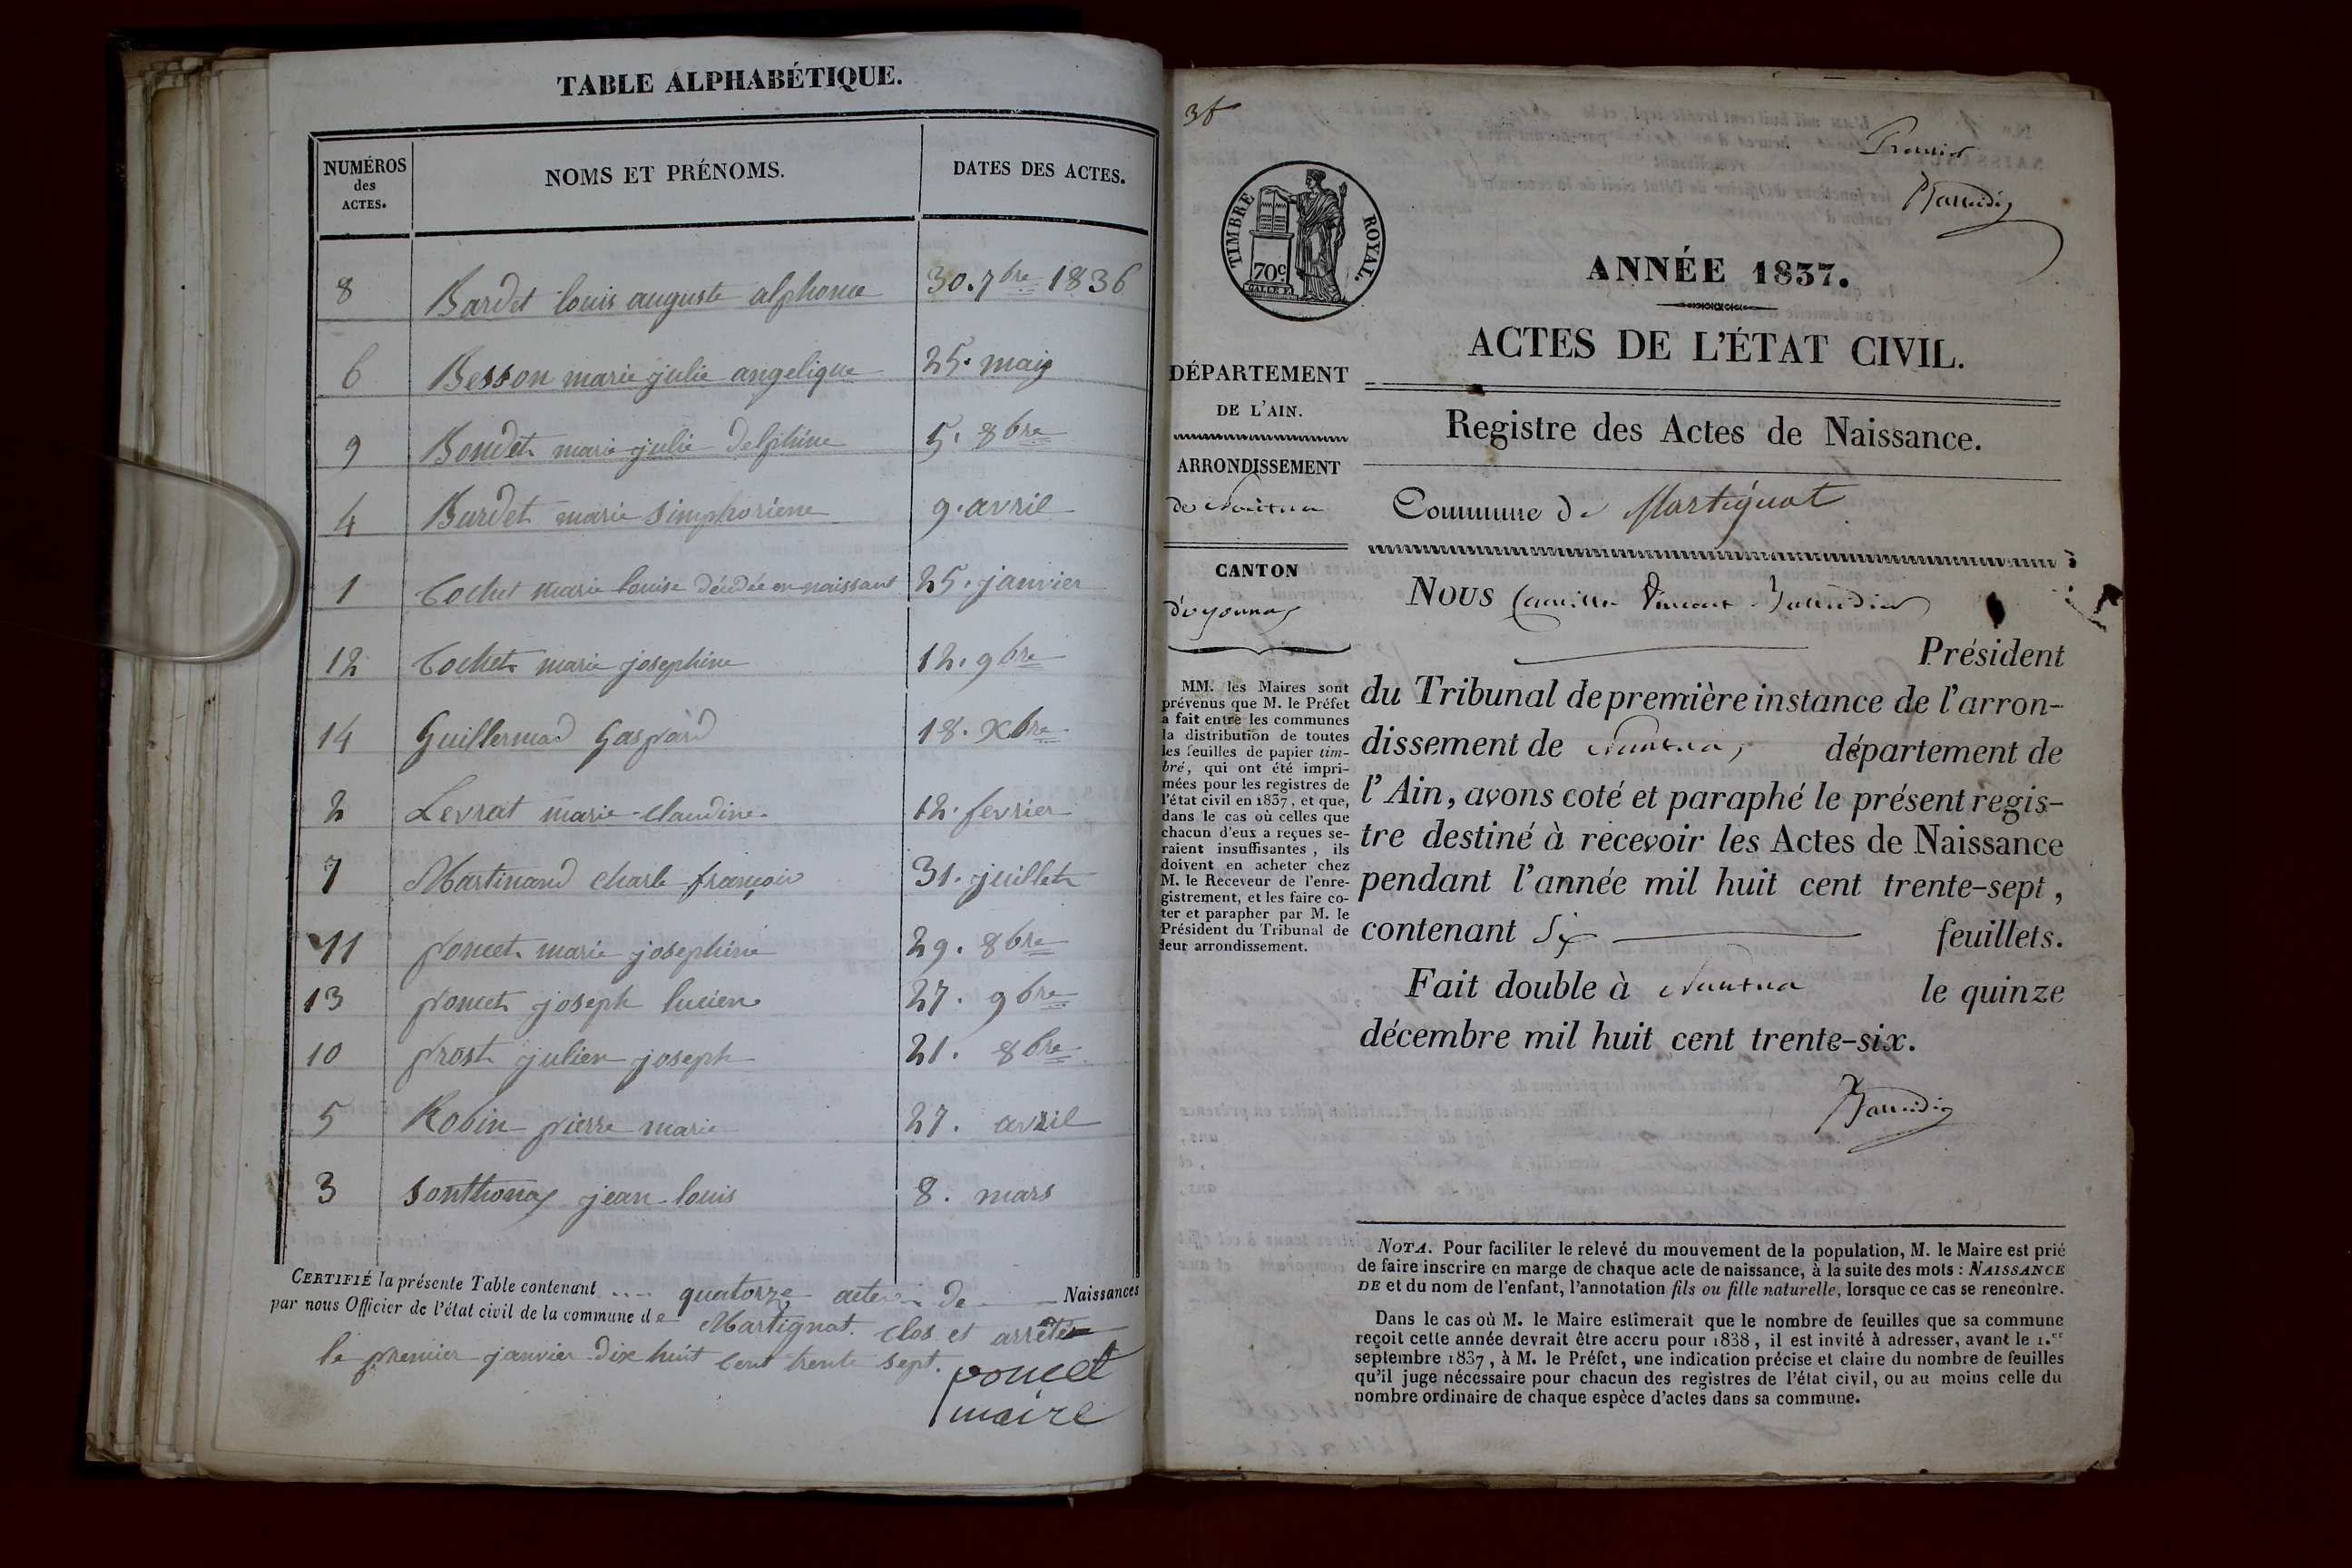 TABLE ALPHABÉTIQUE.
NUMÉROS des ACTES. NOMS ET PRÉNOMS. DATES DES ACTES.
8 Bardet louis auguste alphonse 30. 7bre 1836
6 Besson marie julie angelique 25. mai
9 Bondet marie julie delphine 5. 8bre
4 Burdet marie simphoriene 9. avril
1 Cochet marie louise décédée en naissant 25. janvier
12 Cochet marie josephine 12. 9bre
14 Guillermod Gaspard 18. Xbre
2 Levrat marie claudine 12. fevrier
7 Martinand charle françois 31. juillet
11 poncet marie josephine 29. 8bre
13 poncet joseph lucien 27. 9bre
10 prost julien joseph 21. 8bre
5 Robin pierre marie 27. avril
3 Sonthonax jean louis 8. mars
CERTIFIÉ la présente Table contenant .... quatorze actes de Naissances
par nous Officier de l'état civil de la commune de Martignat. clos et arrêtés
le premier janvier dix huit cent trente sept.
poncet
maire
Premier
TIMBRE ROYAL.
70c
ANNÉE 1837.
ACTES DE L'ÉTAT CIVIL.
DÉPARTEMENT
DE L'AIN.
ARRONDISSEMENT
de Nantua
CANTON
d'oyonnax
MM. les Maires sont
prévenus que M. le Préfet
a fait entre les communes
la distribution de toutes
les feuilles de papier tim-
bré, qui ont été impri-
mées pour les registres de
l'état civil en 1837, et que,
dans le cas où celles que
chacun d'eux a reçues se-
raient insuffisantes, ils
doivent en acheter chez
M. le Receveur de l'enre-
gistrement, et les faire co-
ter et parapher par M. le
Président du Tribunal de
leur arrondissement.
Registre des Actes de Naissance.
Commune de Martignat
NOUS Camille Vincent
Président
du Tribunal de première instance de l'arron-
dissement de Nantua, département de
l'Ain, avons coté et paraphé le présent regis-
tre destiné à recevoir les Actes de Naissance
pendant l'année mil huit cent trente-sept,
contenant Six feuillets.
Fait double à Nantua le quinze
décembre mil huit cent trente-six.
NOTA. Pour faciliter le relevé du mouvement de la population, M. le Maire est prié
de faire inscrire en marge de chaque acte de naissance, à la suite des mots : NAISSANCE
DE et du nom de l'enfant, l'annotation fils ou fille naturelle, lorsque ce cas se rencontre.
Dans le cas où M. le Maire estimerait que le nombre de feuilles que sa commune
reçoit cette année devrait être accru pour 1838, il est invité à adresser, avant le 1.er
septembre 1837, à M. le Préfet, une indication précise et claire du nombre de feuilles
qu'il juge nécessaire pour chacun des registres de l'état civil, ou au moins celle du
nombre ordinaire de chaque espèce d'actes dans sa commune.